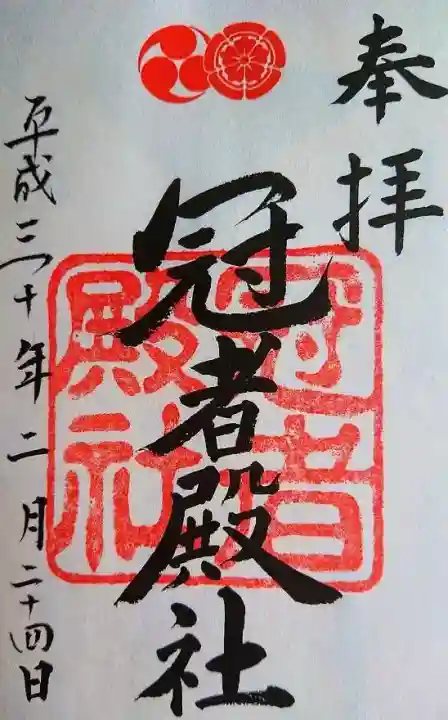 奉拝
冠者殿社
冠者
殿社
平成三十年二月二十四日